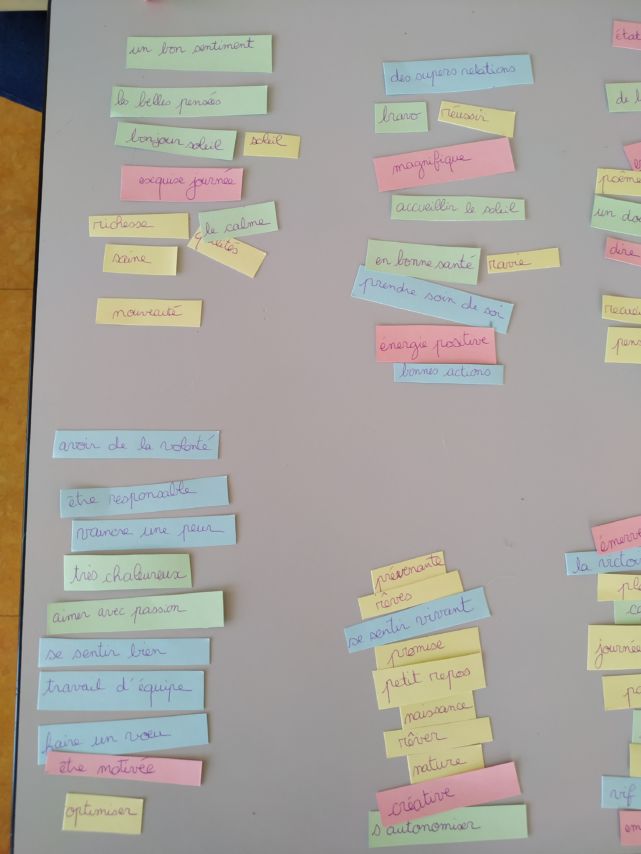 un bon sentiment
les belles pensées
bonjour soleil
soleil
exquise journée
richesse
le calme
saine
nouveauté
des supers relations
bravo
réussir
magnifique
accueillir le soleil
en bonne santé
ravie
prendre soin de soi
énergie positive
bonnes actions
état
de l
poème
un do
dire
recuei
pens
avoir de la volonté
être responsable
vaincre une peur
très chaleureux
aimer avec passion
se sentir bien
travail d'équipe
faire un vœu
être motivée
optimiser
prévenante
rêves
se sentir vivant
promise
petit repos
naissance
rêver
nature
créative
s'autonomiser
émerve
la victoi
journée
vif
em